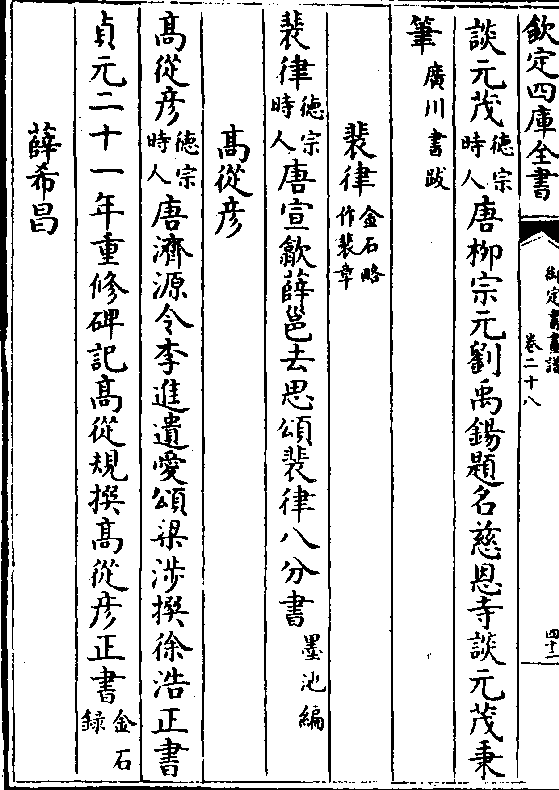 欽定四庫全書
御定書畫譜
卷二十八
四十二
談元茂德宗時人唐柳宗元劉禹錫題名慈恩寺談元茂秉
筆廣川書跋
裴律金石略作裴章
裴律德宗時人唐宣歙薛邕去思頌裴律八分書墨池編
高從彦
高從彦德宗時人唐濟源令李進遺愛頌梁涉撰徐浩正書
貞元二十一年重修碑記高從規撰高從彦正書金石錄
薛希昌